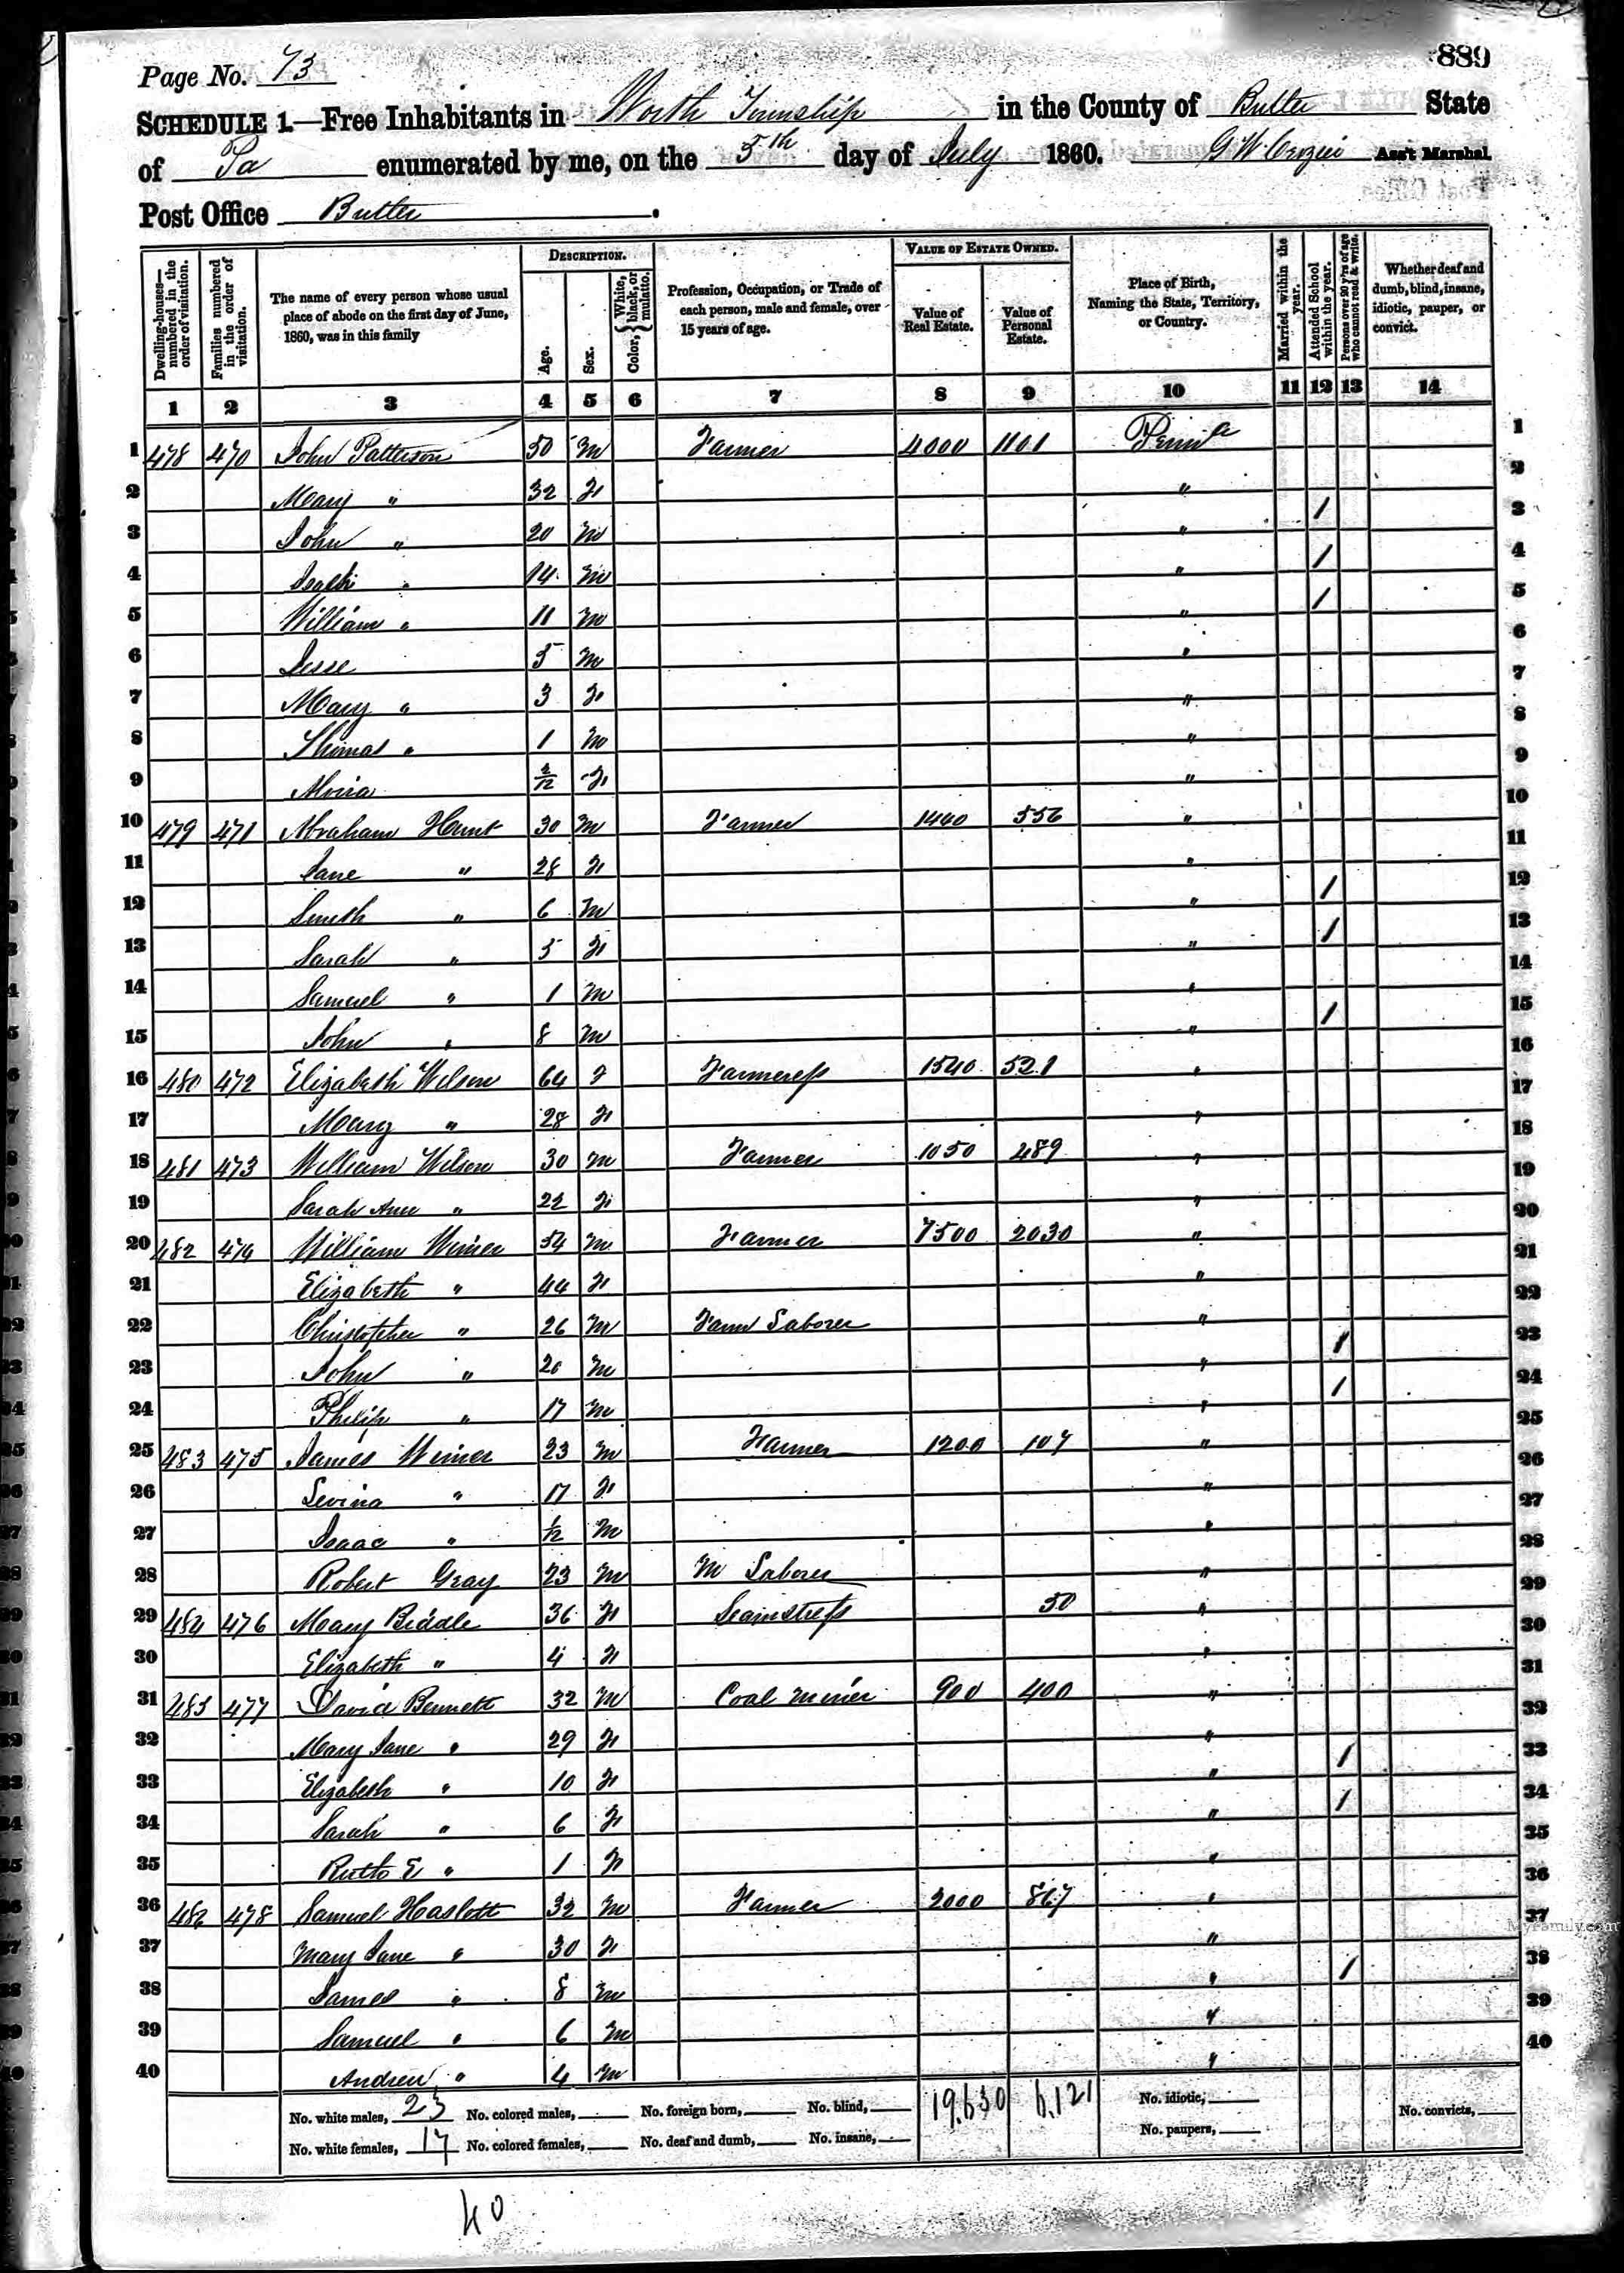 889
Page No. 73
SCHEDULE 1.—Free Inhabitants in Worth Township in the County of Butler State
of Pa enumerated by me, on the 5th day of July 1860. G W Ass't Marshal.
Post Office Butler.
Dwelling-houses—numbered in the order of visitation. Families numbered in the order of visitation. The name of every person whose usual place of abode on the first day of June, 1860, was in this family DESCRIPTION. Age. Sex. Color, { White, black, or mulatto. Profession, Occupation, or Trade of each person, male and female, over 15 years of age. VALUE OF ESTATE OWNED. Value of Real Estate. Value of Personal Estate. Place of Birth, Naming the State, Territory, or Country. Married within the year. Attended School within the year. Persons over 20 y'rs of age who cannot read & write. Whether deaf and dumb, blind, insane, idiotic, pauper, or convict.
1 2 3 4 5 6 7 8 9 10 11 12 13 14
1 478 470 John Patterson 50 m Farmer 4000 1101 Penna 1
2 Mary " 32 F " 2
3 John " 20 m " 1 3
4 " 14 m " 1 4
5 William " 11 m " 1 5
6 Jesse 5 m " 6
7 Mary " 3 F " 7
8 Thomas " 1 m " 8
9 2/12 F " 9
10 479 471 Abraham Hunt 30 m Farmer 1400 556 " 10
11 Jane " 28 F " 11
12 " 6 m " 1 12
13 Sarah " 5 F " 1 13
14 Samuel " 1 m " 14
15 John " 8 m " 1 15
16 480 472 Elizabeth Wilson 64 F Farmeress 1540 521 " 16
17 Mary " 28 F " 17
18 481 473 William Wilson 30 m Farmer 1050 489 " 18
19 Sarah Ann " 22 F " 19
20 482 474 William Weimer 54 m Farmer 7500 2030 " 20
21 Elizabeth " 44 F " 21
22 Christopher " 26 m Farm Laborer " 22
23 John " 20 m " 1 23
24 Philip " 17 m " 1 24
25 483 475 James Weimer 23 m Farmer 1200 107 " 25
26 Levina " 17 F " 26
27 Isaac " 1/12 m " 27
28 Robert Gray 23 m M Laborer " 28
29 484 476 Mary Biddle 36 F Seamstress 50 " 29
30 Elizabeth " 4 F " 30
31 485 477 David Bennett 32 m Coal miner 900 400 " 31
32 Mary Jane " 29 F " 32
33 Elizabeth " 10 F " 1 33
34 Sarah " 6 F " 1 34
35 Ruth E " 1 F " 35
36 486 478 Samuel Haslett 32 m Farmer 2000 867 " 36
37 Mary Jane " 30 F " 37
38 James " 8 m " 1 38
39 Samuel " 6 m " 39
40 Andrew " 4 m " 40
No. white males, 23 No. colored males, No. foreign born, No. blind, 19.630 6.121 No. idiotic, No. convicts,
No. white females, 17 No. colored females, No. deaf and dumb, No. insane, No. paupers,
40
MyFamily.com